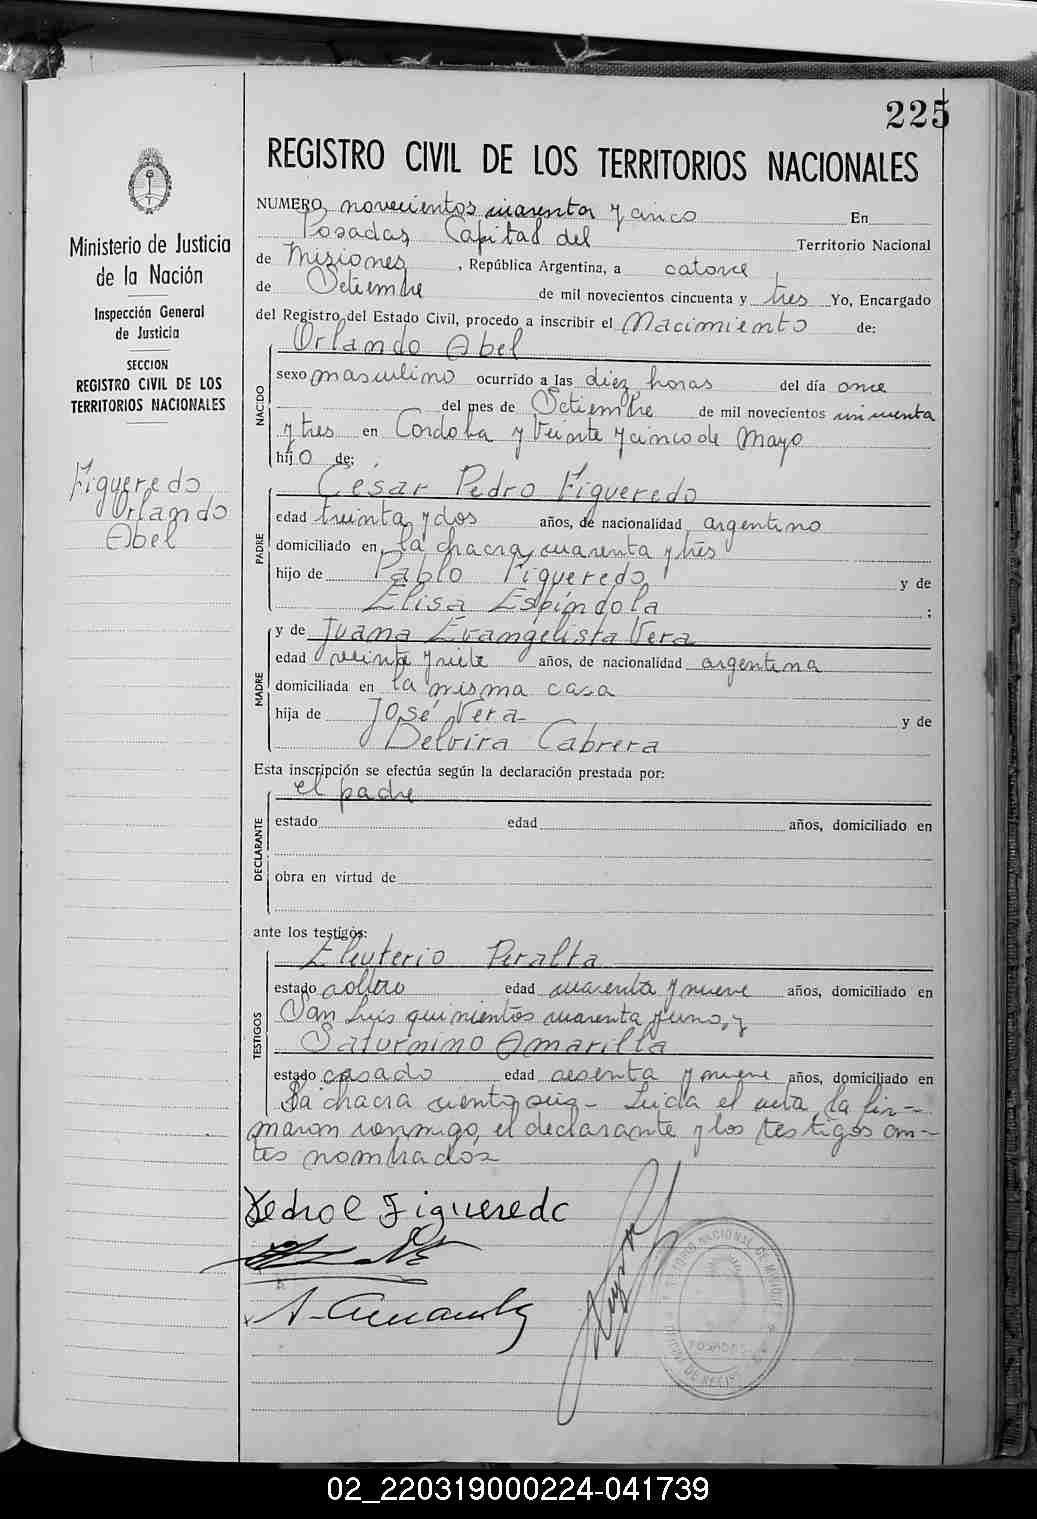 225
REGISTRO CIVIL DE LOS TERRITORIOS NACIONALES
Ministerio de Justicia
de la Nación
Inspección General
de Justicia
SECCION
REGISTRO CIVIL DE LOS
TERRITORIOS NACIONALES
Figueredo
Orlando
Abel
NUMERO novecientos cuarenta y cinco En
Posadas, Capital del Territorio Nacional
de Misiones, República Argentina, a catorce
de Setiembre de mil novecientos cincuenta y tres Yo, Encargado
del Registro del Estado Civil, procedo a inscribir el Nacimiento de:
NACIDO
Orlando Abel
sexo masculino ocurrido a las diez horas del día once
del mes de Setiembre de mil novecientos cincuenta
y tres en Cordoba y Veinte y cinco de Mayo
hijo de:
PADRE
César Pedro Figueredo
edad treinta y dos años, de nacionalidad argentino
domiciliado en la chacra cuarenta y tres
hijo de Pablo Figueredo y de
Elisa Espíndola ;
MADRE
y de Juana Evangelista Vera
edad veinte y siete años, de nacionalidad argentina
domiciliada en la misma casa
hija de José Vera y de
Delvira Cabrera
Esta inscripción se efectúa según la declaración prestada por:
DECLARANTE
el padre
estado edad años, domiciliado en
obra en virtud de
ante los testigos:
TESTIGOS
Eleuterio Peralta
estado soltero edad cuarenta y nueve años, domiciliado en
San Luis quinientos cuarenta y uno, y
Saturnino Amarilla
estado casado edad sesenta y nueve años, domiciliado en
la chacra ciento seis - Leida el acta, la fir-
maron conmigo, el declarante y los testigos an-
tes nombrados
Pedro C Figueredo
POSADAS
02_220319000224-041739